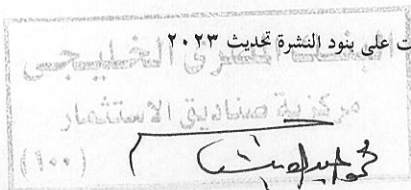 ت على بنود النشرة تحديث ٢٠٢٣
البنك المصرى الخليجي
مركزية صناديق الاستثمار
(١٠٠)